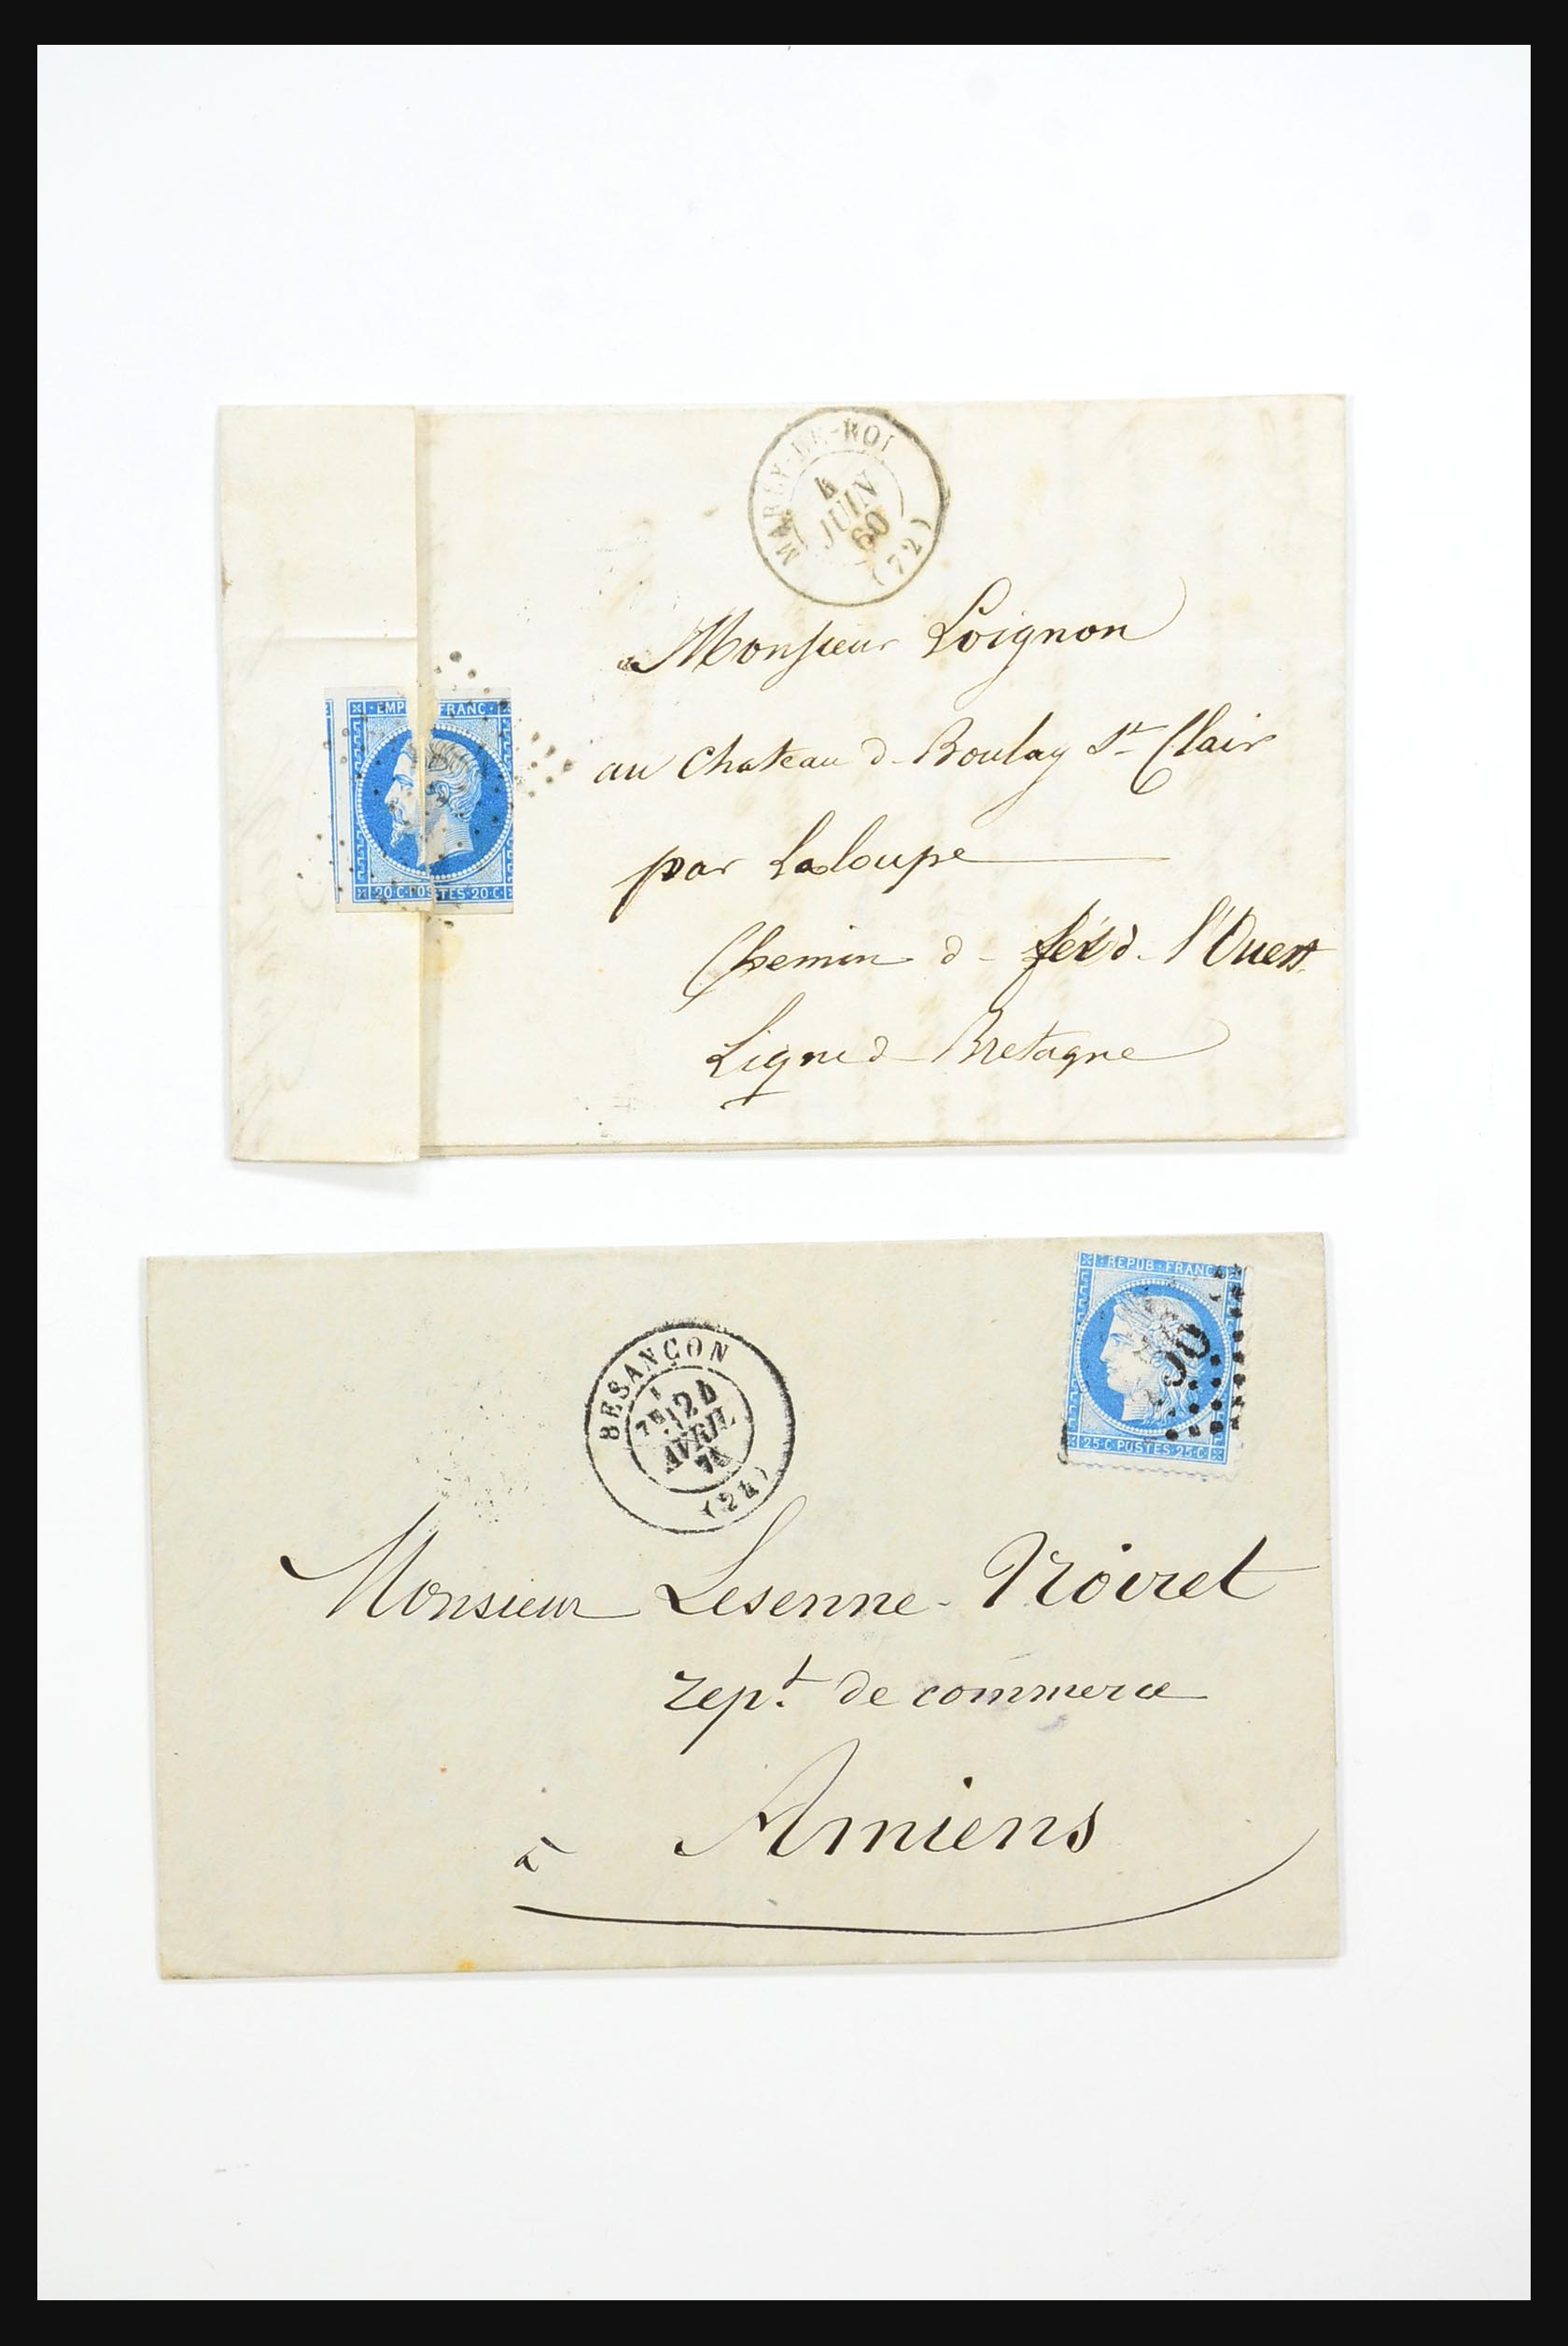 MARLY-LE-ROI
4
JUIN
60
(72)
EMP FRANC
20·C·POSTES·20·C
Monsieur Loignon
au Chateau d Boulay St Clair
par Laloupe
Chemin d fer d l'Ouest
Ligne d Bretagne
REPUB·FRANC
25·C·POSTES·25·C
BESANÇON
7E 24
AVRIL
(24)
Monsieur Lesenne-Noiret
rept. de commerce
à Amiens